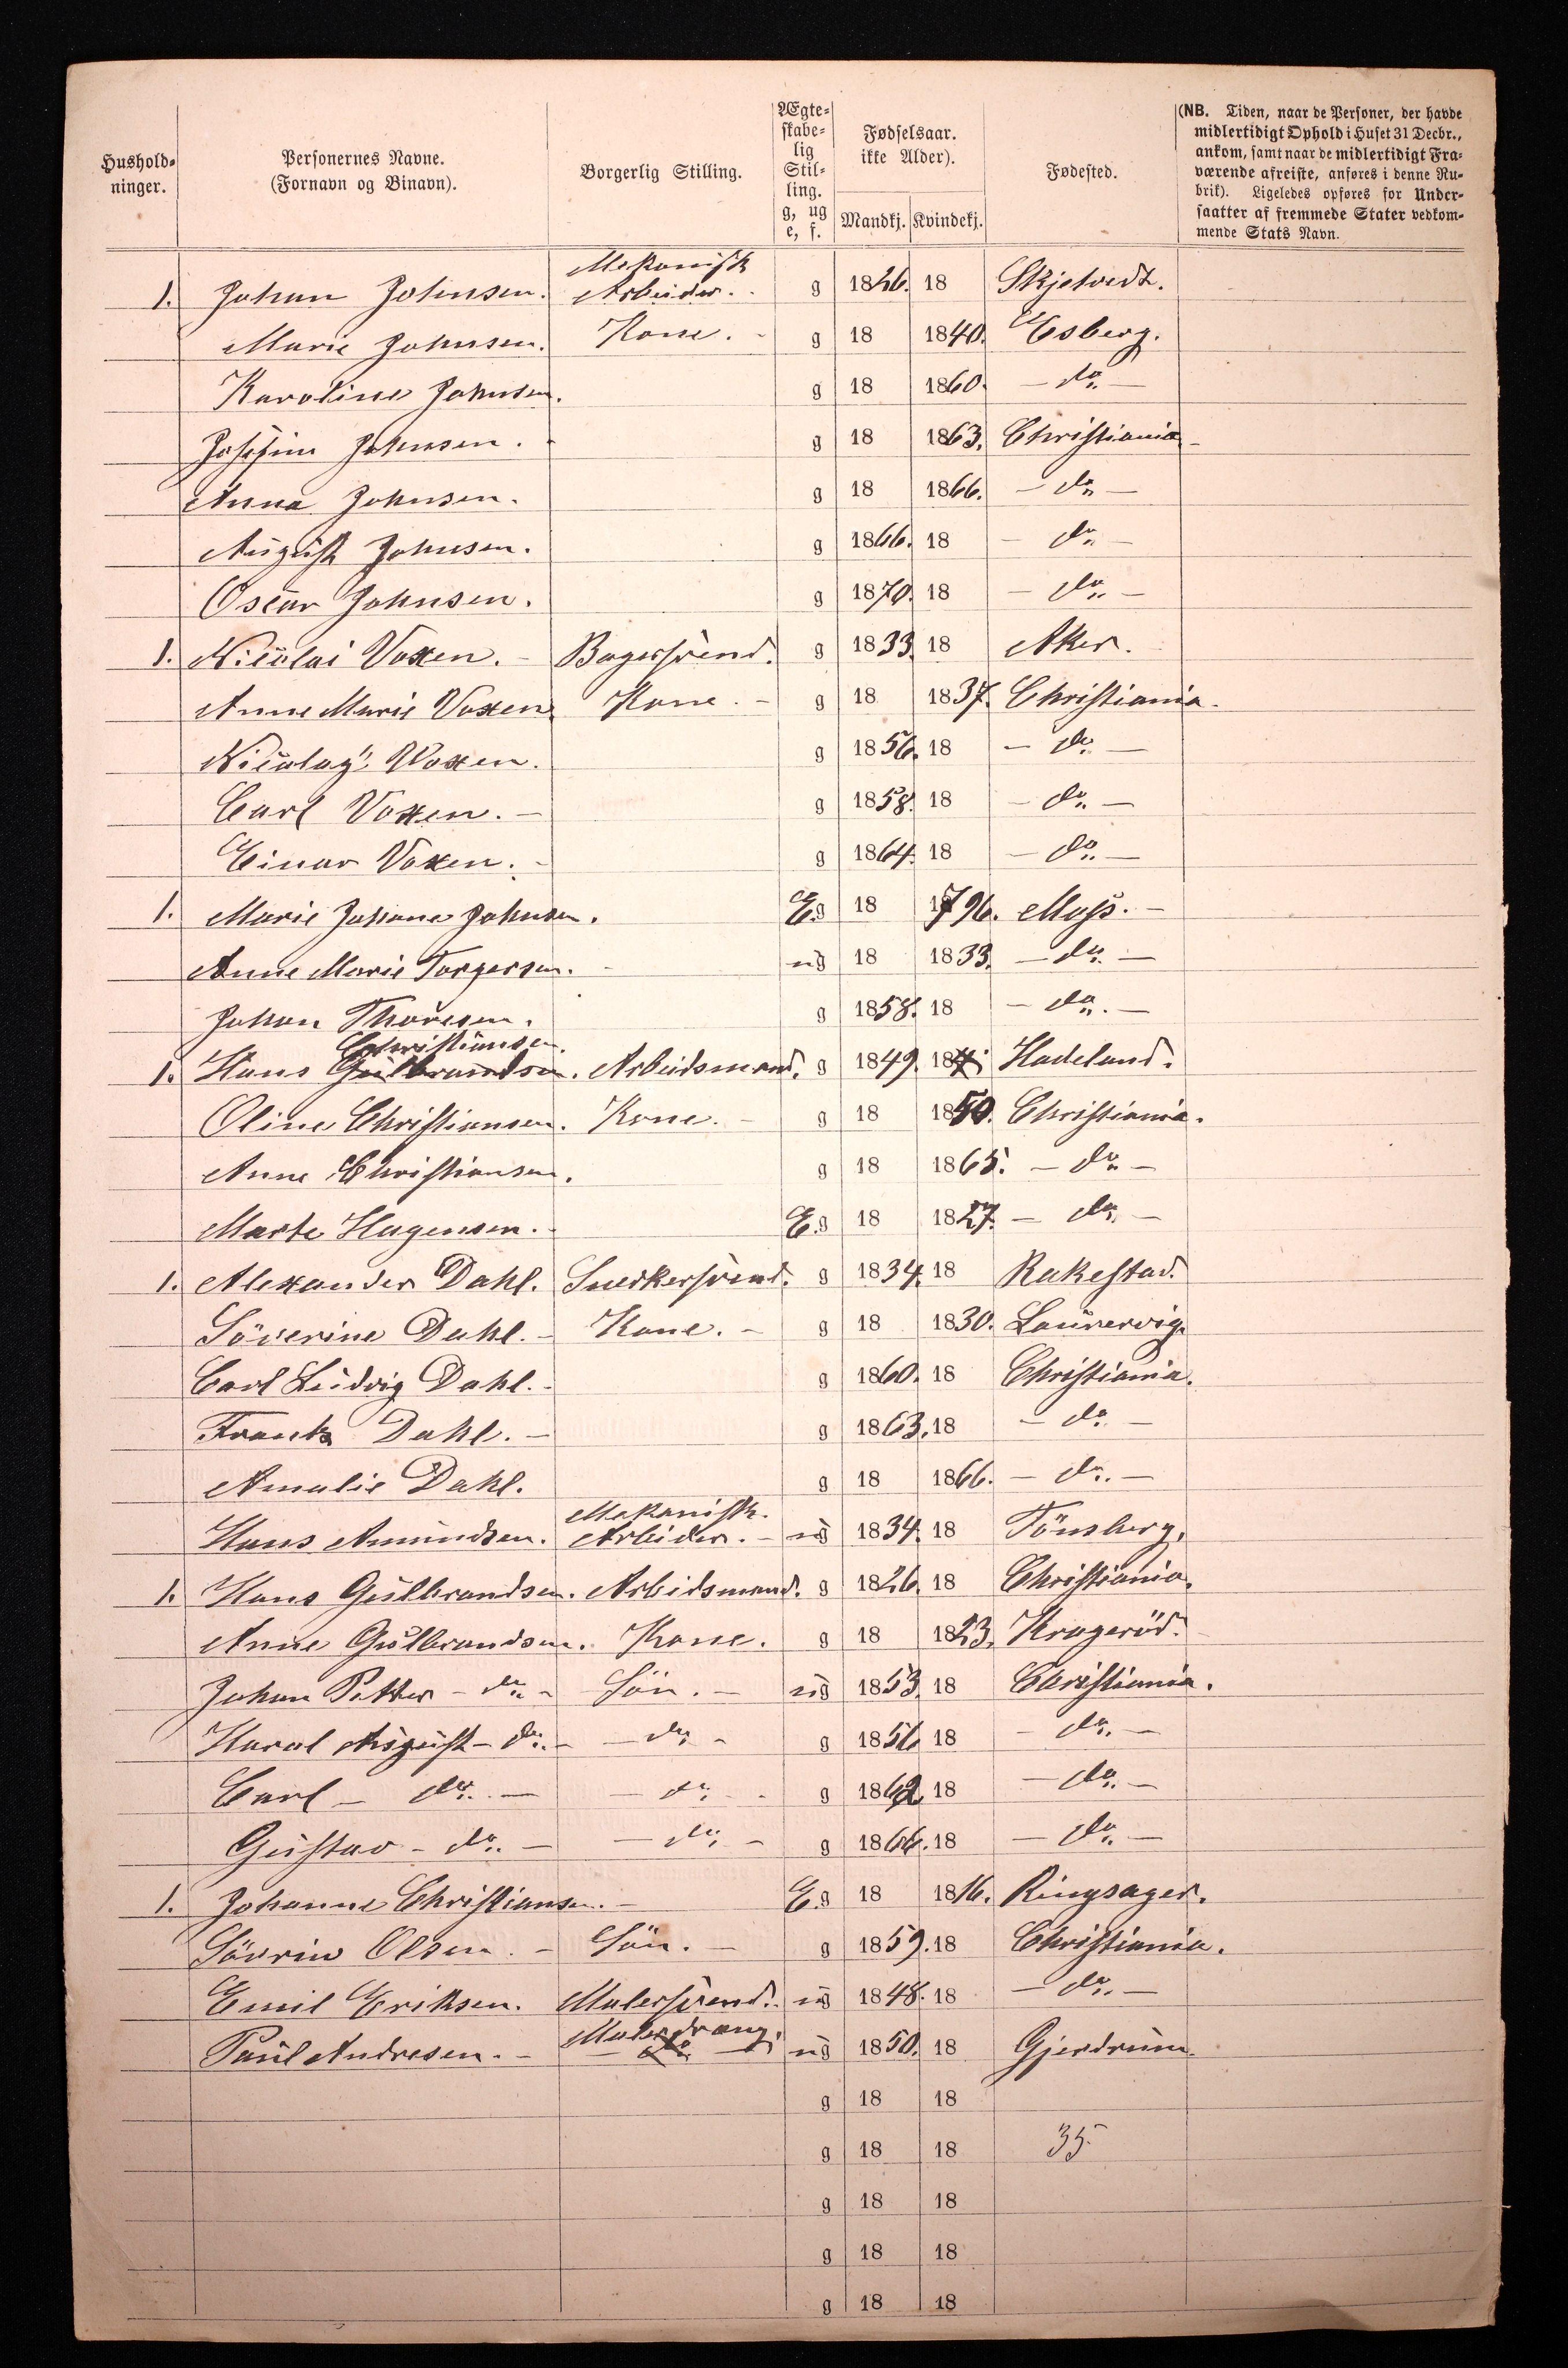 Hushold-
ninger.
Personernes Navne.
(Fornavn og Binavn).
Borgerlig Stilling.
Ægte-
skabe-
lig
Stil-
ling.
g, ug
e, f.
Fødselsaar.
ikke Alder).
Mandkj. Kvindekj.
Fødested.
(NB. Tiden, naar de Personer, der havde
midlertidigt Ophold i Huset 31 Decbr.,
ankom, samt naar de midlertidigt Fra-
værende afreiste, anføres i denne Ru-
brik). Ligeledes opføres for Under-
saatter af fremmede Stater vedkom-
mende Stats Navn.
1. Johan Johnsen. Mekanisk Arbeider. g 1826. 18 Skjetvedt.
Marie Johnsen. Kone. - g 18 1840. Esberg.
Karoline Johnsen. g 18 1860. - do. -
Josefine Johnsen. - g 18 1863. Christiania -
Anna Johnsen. g 18 1866. - do -
August Johnsen. g 1866. 18 - do. -
Oscar Johnsen. g 1870. 18 - do. -
1. Nicolai Voxen. - Bagersvend. g 1833. 18 Aker.
Anne Marie Voxen. Kone. - g 18 1837. Christiania.
Nicolay Voxen. g 1856. 18 - do. -
Carl Voxen. - g 1858. 18 - do. -
Einar Voxen. - g 1864. 18 - do. -
1. Marie Johane Johnsen. E.g 18 1796. Moss. -
Anne Marie Torgersen. - ug 18 1833. - do. -
Johan Thoresen. g 1858. 18 - do. -
Christiansen.
1. Hans Gulbrandsen. Arbeidsmand. g 1849. 18 Hadeland.
Oline Christiansen. Kone. - g 18 1850. Christiania.
Anne Christiansen. g 18 1865. - do. -
Marte Hagensen. - E.g 18 1827. - do. -
1. Alexander Dahl. Snedkersvend. g 1834. 18 Rakestad.
Söverine Dahl. - Kone. - g 18 1830. Laurervig.
Carl Ludvig Dahl. - g 1860. 18 Christiania.
Frantz Dahl. - g 1863. 18 - do -
Amalie Dahl. g 18 1866. - do. -
Hans Amundsen. Mekanisk. Arbider. - ug 1834. 18 Tönsberg.
1. Hans Gulbrandsen. Arbidsmand. g 1826. 18 Christiania.
Anne Gulbrandsen. Kone. g 18 1823. Kragerød.
Johan Petter - do. - Sön. - ug 1853. 18 Christiania.
Haral August - do. - - do. - g 1856 18 - do. -
Carl - do. - - do. - g 1862 18 - do. -
Gustav - do. - - do. - g 1866. 18 - do. -
1. Johanne Christiansen. - E.g 18 1816. Ringsager.
Sövrin Olsen. - Sön. - g 1859. 18 Christiania.
Emil Eriksen. Malersvend. ug 1848. 18 - do. -
Paul Andresen. - Malerdreng. - do. - ug 1850. 18 Gjerdrum.
g 18 18
g 18 18 35
g 18 18
g 18 18
g 18 18